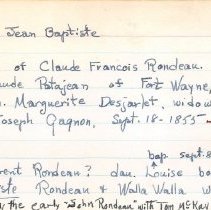 Jean Baptiste
of Claude Francois Rondeau.
ude Patajean of Fort Wayne,
. Marguerite Desjarlet, widow
Joseph Gagnon, Sept. 18-1855
bap. sept. 8
rent Rondeau? dau. Louise bo
ste Rondeau & Walla Walla w
the early "John Rondeau" with Tom McKay